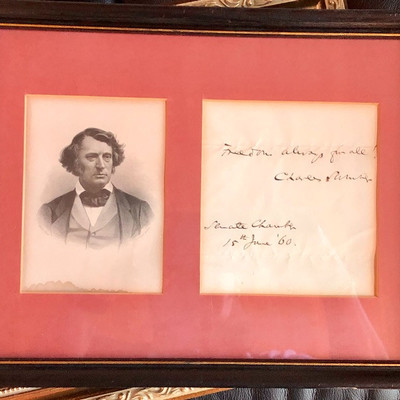 Freedom always for all!
Charles Sumner
Senate Chamber
15th June '60.